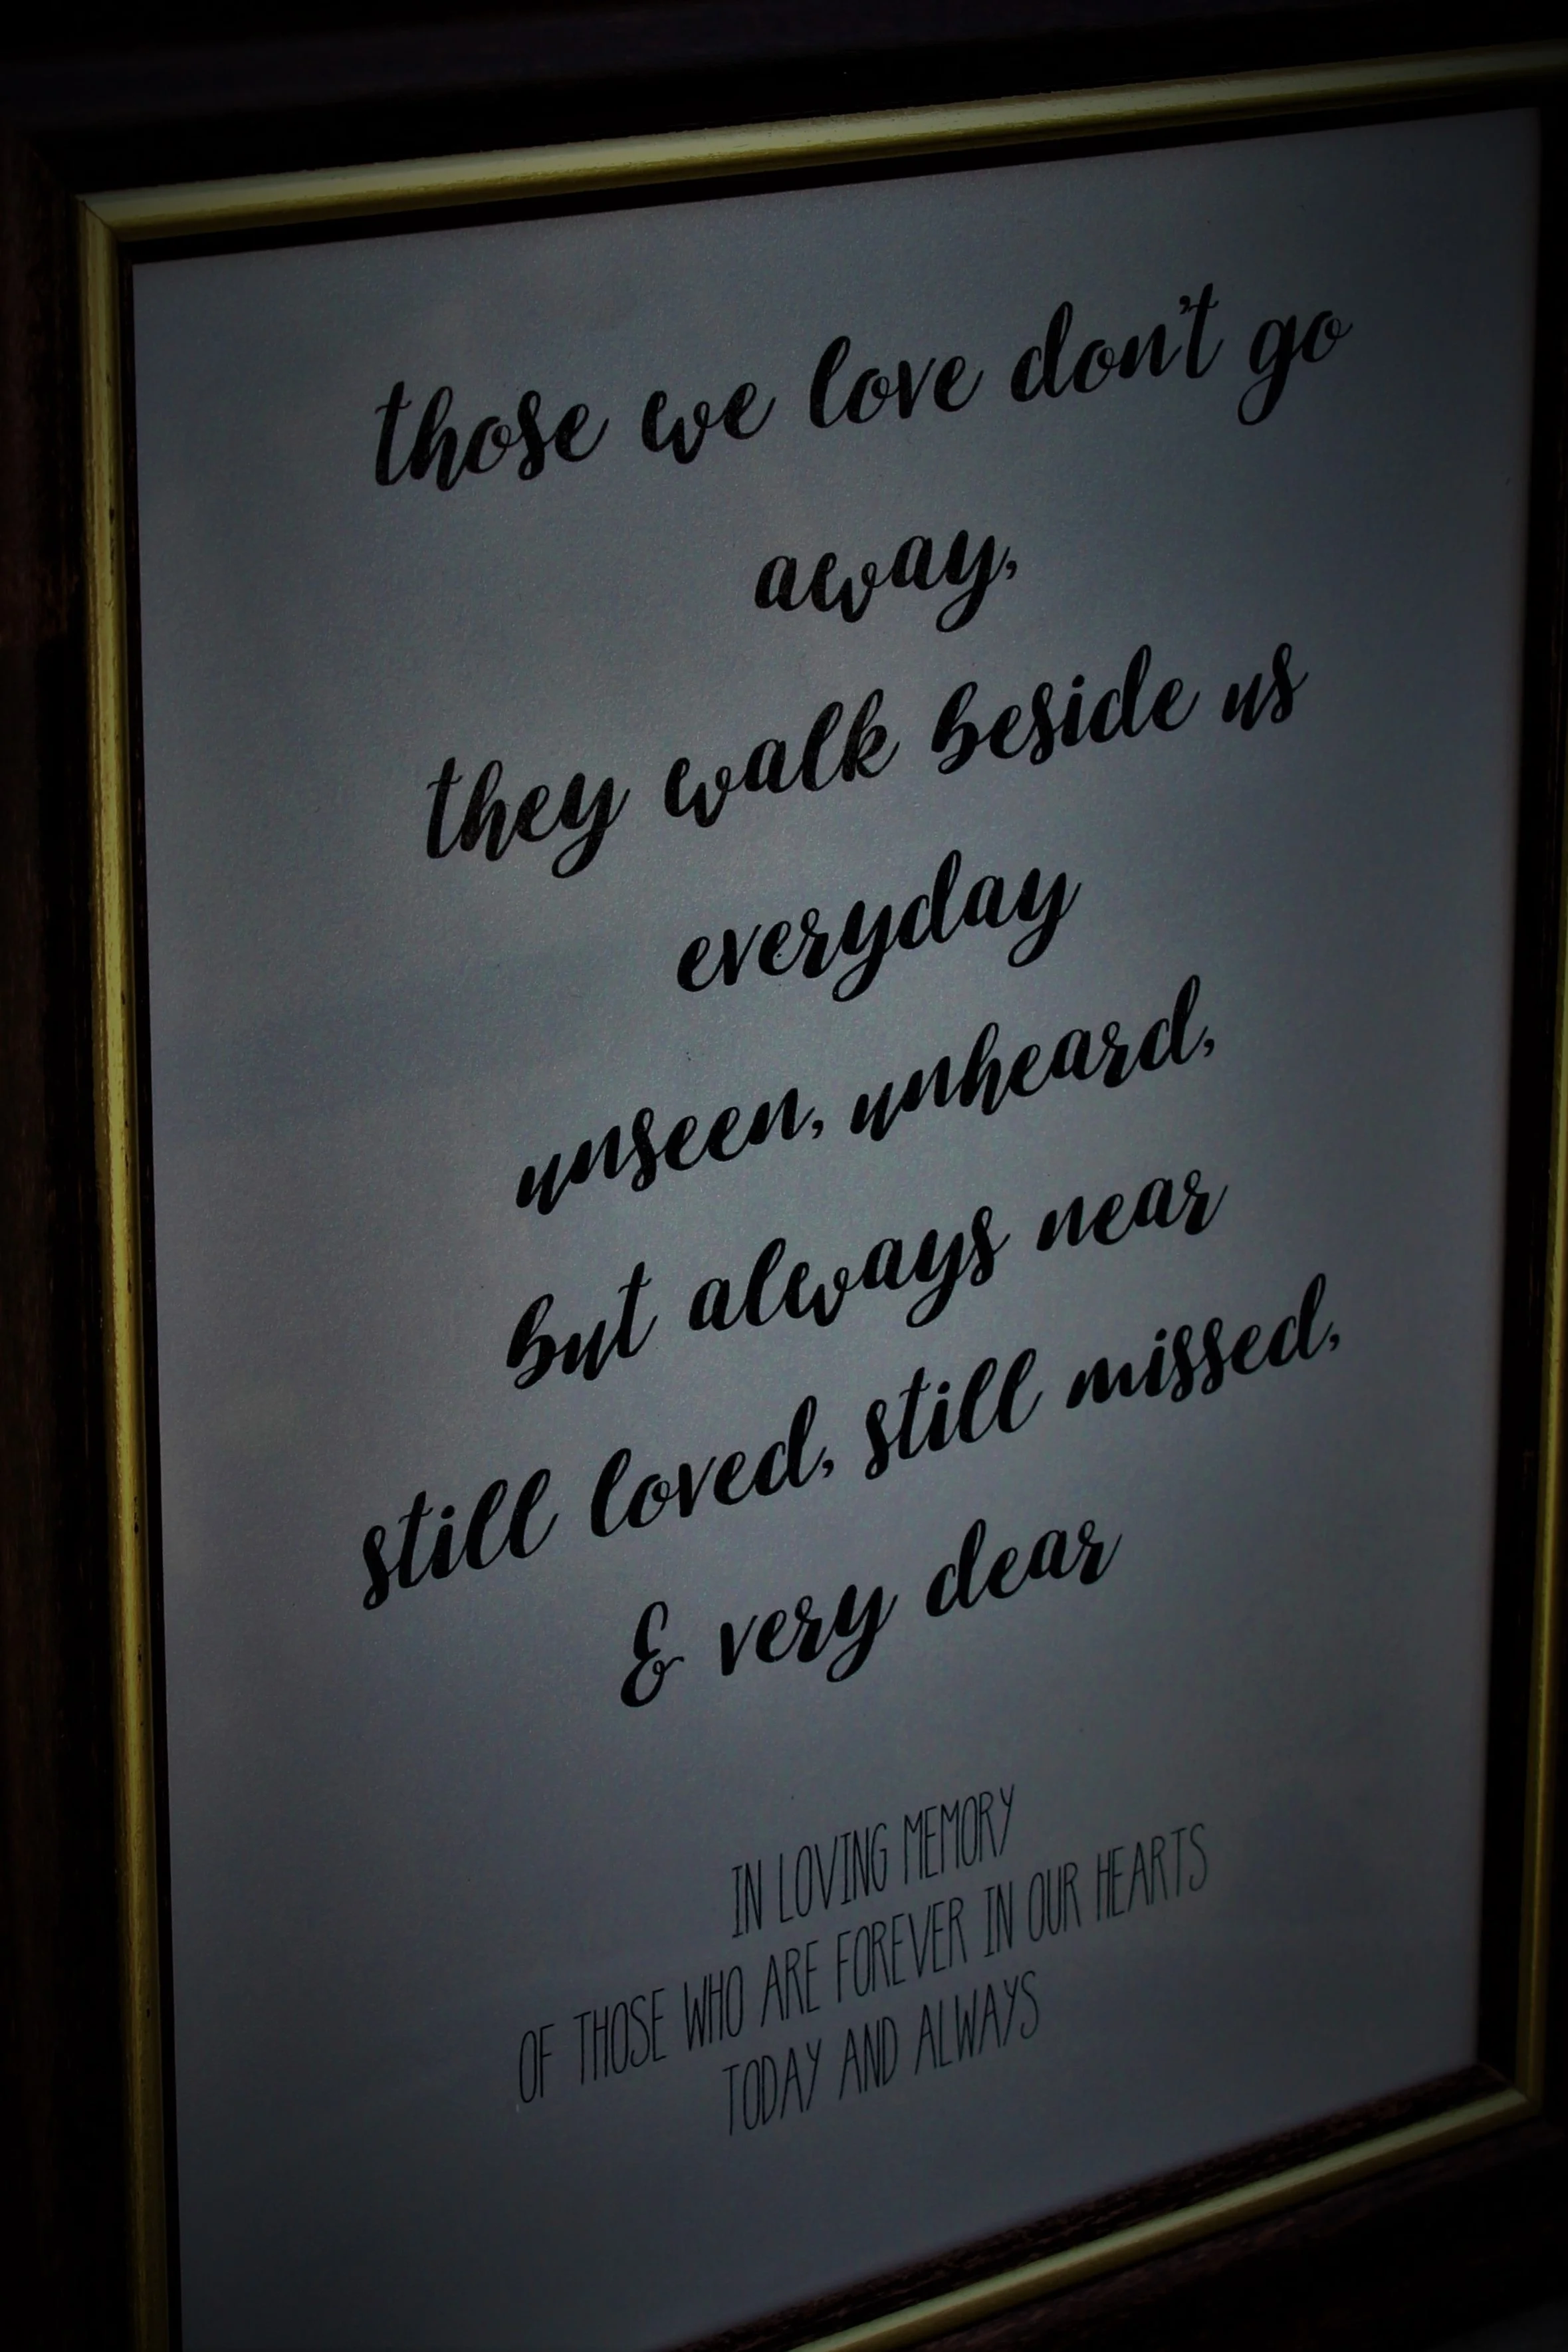 those we love don't go
away,
they walk beside us
everyday
unseen, unheard,
but always near
still loved, still missed,
& very dear
IN LOVING MEMORY
OF THOSE WHO ARE FOREVER IN OUR HEARTS
TODAY AND ALWAYS